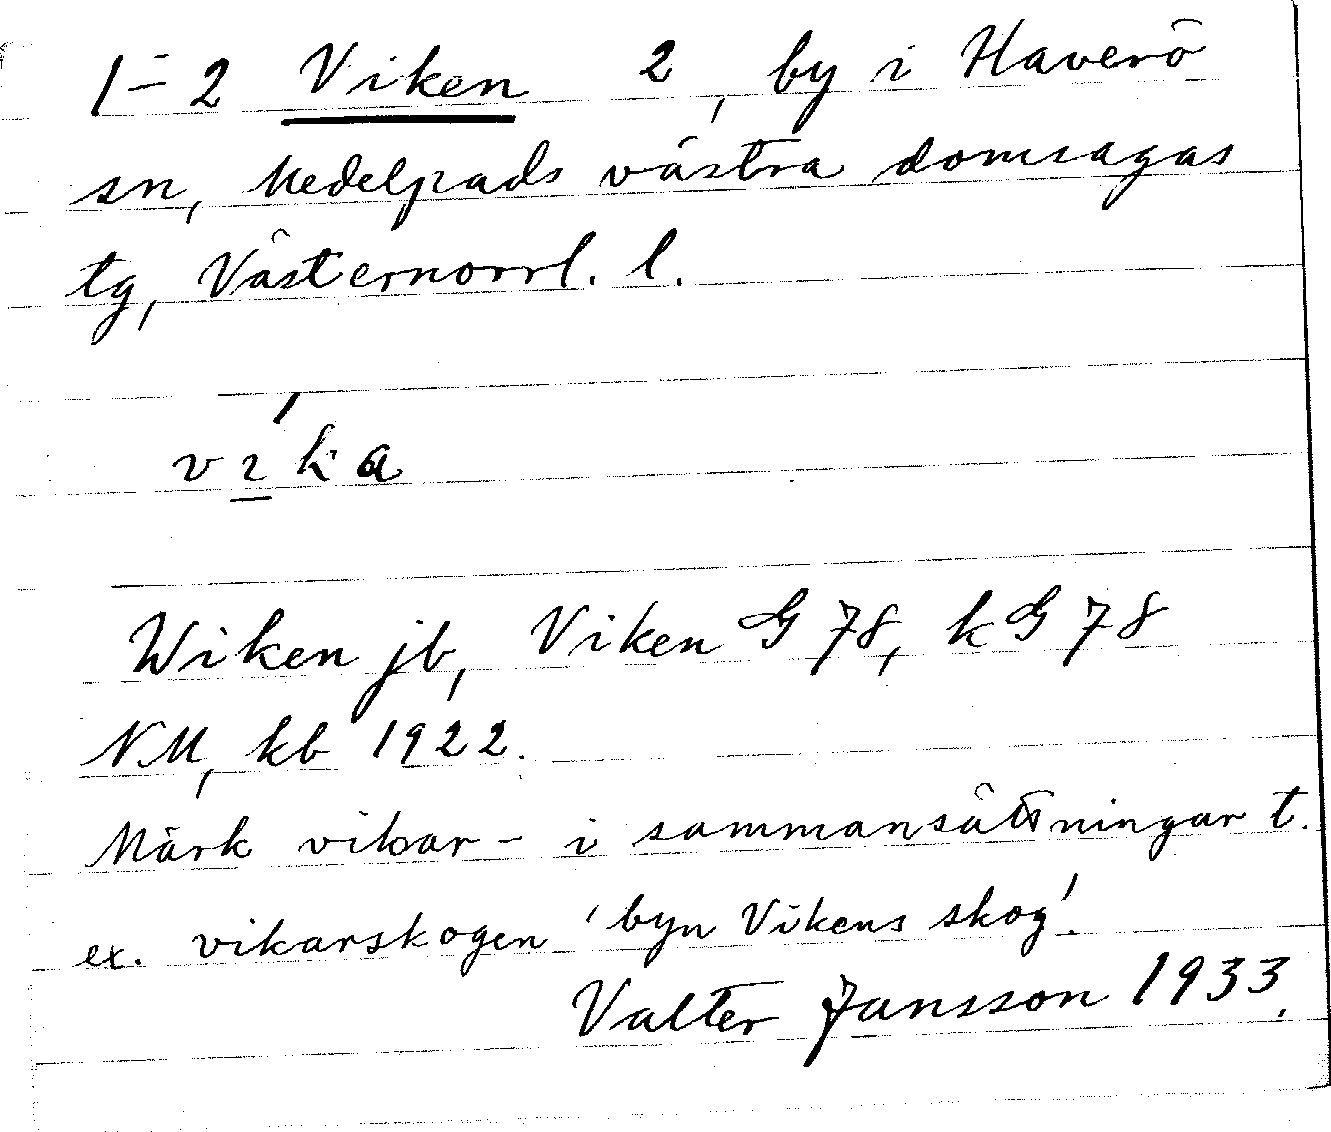 1-2 Viken 2, by i Haverö
sn, Medelpads västra domsagas
tg, Västernorrl. l.
vı̲́ka
Wiken jb, Viken G 78, kG 78
NM, kb 1922.
Märk vikar- i sammansättningar t.
ex. vikarskogen 'byn Vikens skog'.
Valter Jansson 1933.